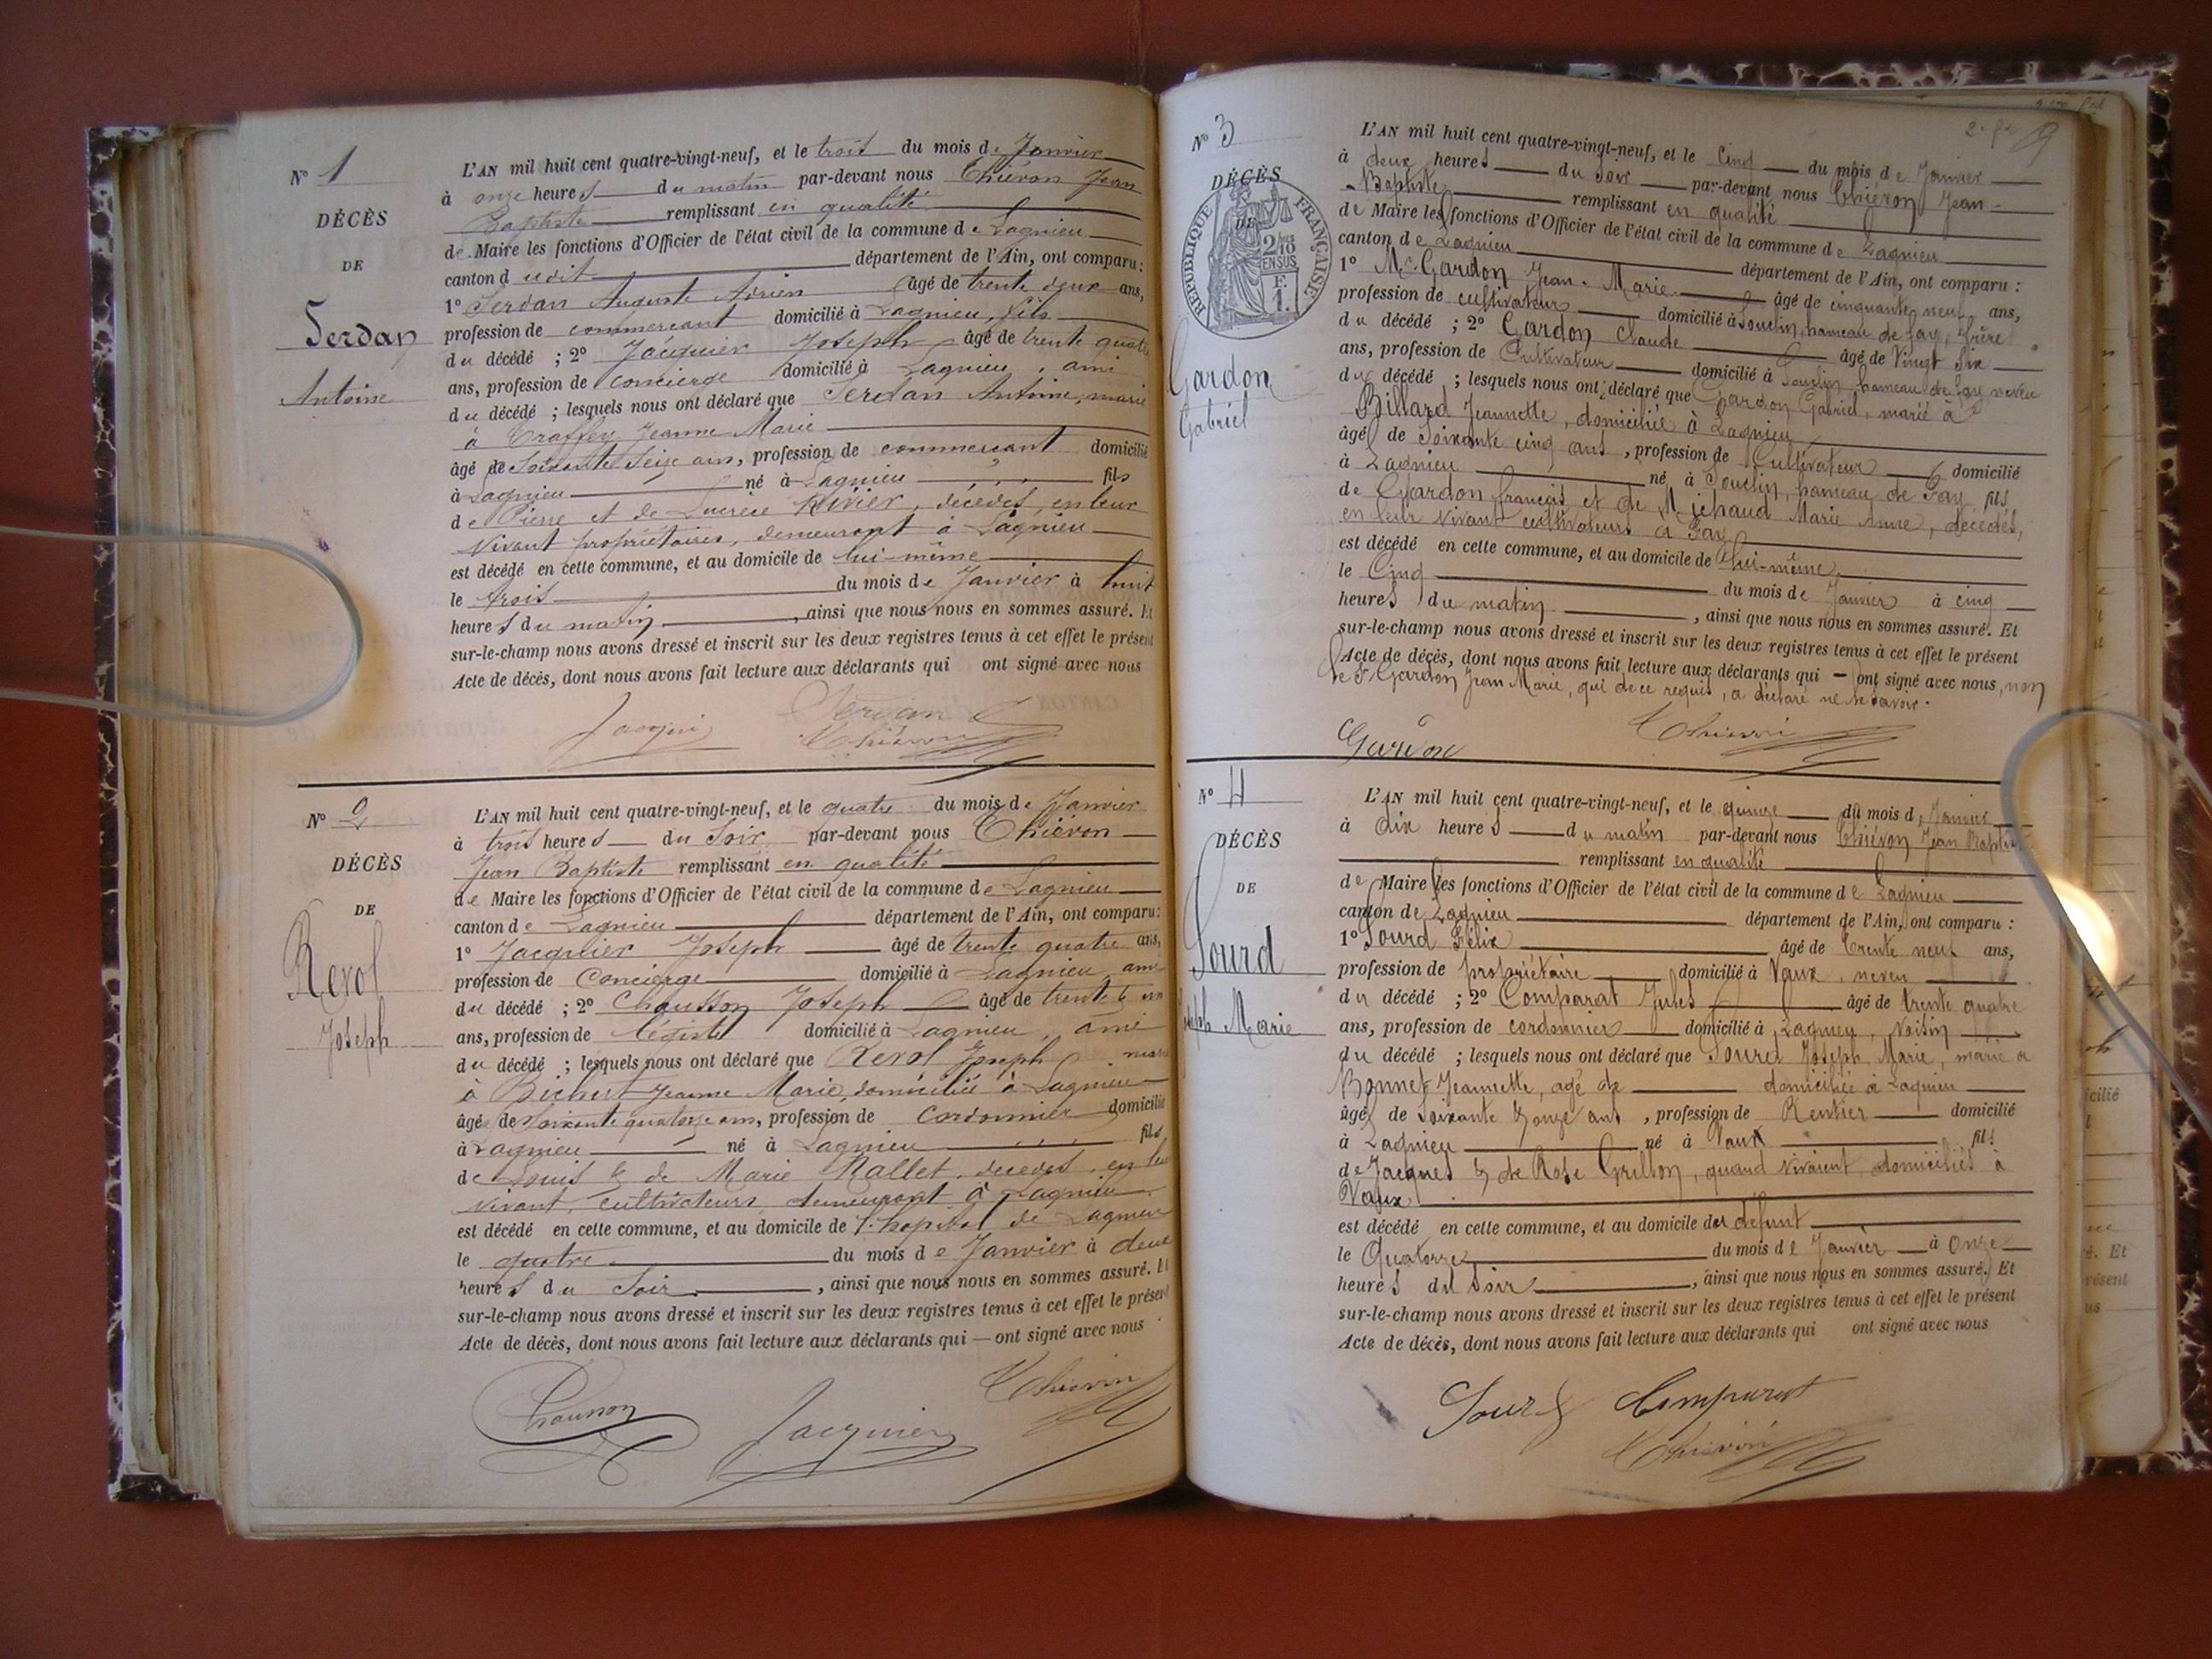 N° 1
DÉCÈS
DE
Serdan
Antoine
L'AN mil huit cent quatre-vingt-neuf, et le trois du mois de Janvier
à onze heures du matin par-devant nous Thiévon Jean
Baptiste remplissant en qualité
de Maire les fonctions d'Officier de l'état civil de la commune de Lagnieu
canton dudit département de l'Ain, ont comparu :
1° Serdan Auguste Adrien âgé de trente deux ans,
profession de commerçant domicilié à Lagnieu, fils
du décédé ; 2° Jacquier Joseph âgé de trente quatre
ans, profession de concierge domicilié à Lagnieu, ami
du décédé ; lesquels nous ont déclaré que Serdan Antoine, marié
à Jeanne Marie
âgé de Soixante Seize ans, profession de commerçant domicilié
à Lagnieu né à Lagnieu fils
de Pierre et de Lucrèce Rivier, décédés, en leur
vivant propriétaires, demeurant à Lagnieu
est décédé en cette commune, et au domicile de lui-même
le trois du mois de Janvier à huit
heures du matin, ainsi que nous nous en sommes assuré. Et
sur-le-champ nous avons dressé et inscrit sur les deux registres tenus à cet effet le présent
Acte de décès, dont nous avons fait lecture aux déclarants qui ont signé avec nous
Serdan
Thiévon
N° 2
DÉCÈS
DE
Revol
Joseph
L'AN mil huit cent quatre-vingt-neuf, et le quatre du mois de Janvier
à trois heures du Soir par-devant nous Thiévon
Jean Baptiste remplissant en qualité
de Maire les fonctions d'Officier de l'état civil de la commune de Lagnieu
canton de Lagnieu département de l'Ain, ont comparu :
1° Jacquier Joseph âgé de trente quatre ans,
profession de Concierge domicilié à Lagnieu, ami
du décédé ; 2° Chausson Joseph âgé de trente
ans, profession de domicilié à Lagnieu, ami
du décédé ; lesquels nous ont déclaré que Revol Joseph
à Jeanne Marie, domiciliée à Lagnieu
âgé de Soixante quatorze ans, profession de Cordonnier domicilié
à Lagnieu né à Lagnieu fils
de Louis & de Marie Mallet, décédés, en leur
vivant, cultivateurs demeurant à Lagnieu
est décédé en cette commune, et au domicile de l'hôpital de Lagnieu
le quatre du mois de Janvier à deux
heures du Soir, ainsi que nous nous en sommes assuré. Et
sur-le-champ nous avons dressé et inscrit sur les deux registres tenus à cet effet le présent
Acte de décès, dont nous avons fait lecture aux déclarants qui — ont signé avec nous
Chausson
Jacquier
Thiévon
9
N° 3
DÉCÈS
DE
RÉPUBLIQUE FRANÇAISE
2/10 EN SUS
Gardon
Gabriel
L'AN mil huit cent quatre-vingt-neuf, et le Cinq du mois de Janvier
à deux heures du Soir par-devant nous Thiévon Jean-
Baptiste remplissant en qualité
de Maire les fonctions d'Officier de l'état civil de la commune de Lagnieu
canton de Lagnieu département de l'Ain, ont comparu :
1° Mr Gardon Jean-Marie âgé de cinquante neuf ans,
profession de cultivateur domicilié à Souclin, hameau de Fay, frère
du décédé ; 2° Gardon Claude âgé de Vingt Six
ans, profession de Cultivateur domicilié à Souclin, hameau de Fay neveu
du décédé ; lesquels nous ont déclaré que Gardon Gabriel, marié à
Billard Jeannette, domiciliée à Lagnieu
âgé de Soixante cinq ans, profession de Cultivateur domicilié
à Lagnieu né à Souclin, hameau de Fay, fils
de Gardon françois et de Michaud Marie Anne, décédés,
en leur vivant cultivateurs à Fay
est décédé en cette commune, et au domicile de lui-même
le Cinq du mois de Janvier à cinq
heures du matin, ainsi que nous nous en sommes assuré. Et
sur-le-champ nous avons dressé et inscrit sur les deux registres tenus à cet effet le présent
Acte de décès, dont nous avons fait lecture aux déclarants qui — ont signé avec nous, non
le Sr Gardon Jean Marie, qui de ce requis, a déclaré ne le savoir.
Gardon
Thiévon
N° 4
DÉCÈS
DE
Sourd
Joseph Marie
L'AN mil huit cent quatre-vingt-neuf, et le quinze du mois d Janvier
à dix heures du matin par-devant nous Thiévon Jean Baptiste
remplissant en qualité
de Maire les fonctions d'Officier de l'état civil de la commune de Lagnieu
canton de Lagnieu département de l'Ain, ont comparu :
1° Sourd Félix âgé de trente neuf ans,
profession de propriétaire domicilié à Vaux, neveu
du décédé ; 2° Comparat Jules âgé de trente quatre
ans, profession de cordonnier domicilié à Lagnieu, Voisin
du décédé ; lesquels nous ont déclaré que Sourd Joseph Marie, marié à
Bonnet Jeannette, âgé de domiciliée à Lagnieu
âgé de Soixante & onze ans, profession de Rentier domicilié
à Lagnieu né à Vaux fils
de Jacques & de Rose Grillon, quand vivaient domiciliés à
Vaux
est décédé en cette commune, et au domicile du défunt
le Quatorze du mois de Janvier à Onze
heures du Soir, ainsi que nous nous en sommes assuré. Et
sur-le-champ nous avons dressé et inscrit sur les deux registres tenus à cet effet le présent
Acte de décès, dont nous avons fait lecture aux déclarants qui ont signé avec nous
Sourd
Comparat
Thiévon